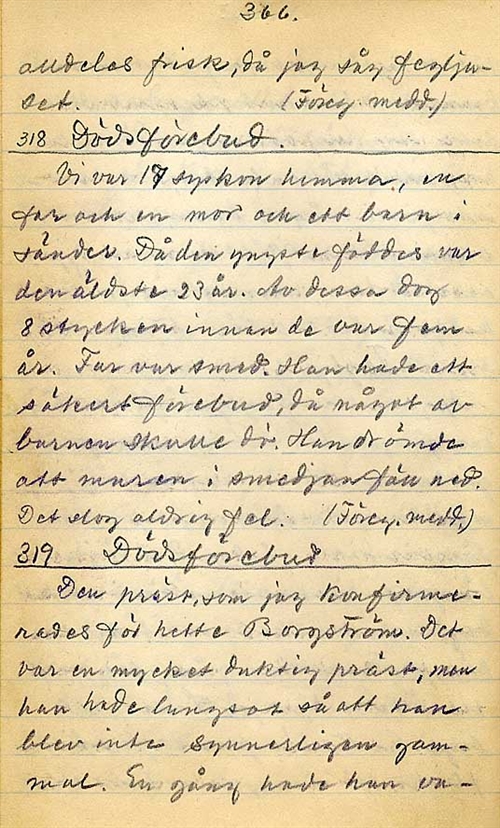 366.
alldeles frisk, då jag såg feglju-
set. (Föreg. medd.)
318 Dödsförebud.
Vi var 17 syskon hemma, en
far och en mor och ett barn i
sänder. Då den yngste föddes var
den äldste 23 år. Av dessa dog
8 stycken innan de var fem
år. Far var smed. Han hade ett
säkert förebud, då något av
barnen skulle dö. Han drömde
att muren i smedjan föll ned.
Det slog aldrig fel. (Föreg. medd.)
319 Dödsförebud
Den präst, som jag konfirme-
rades för hette Borgström. Det
var en mycket duktig präst, men
han hade lungsot så att han
blev inte synnerligen gam-
mal. En gång hade han va-